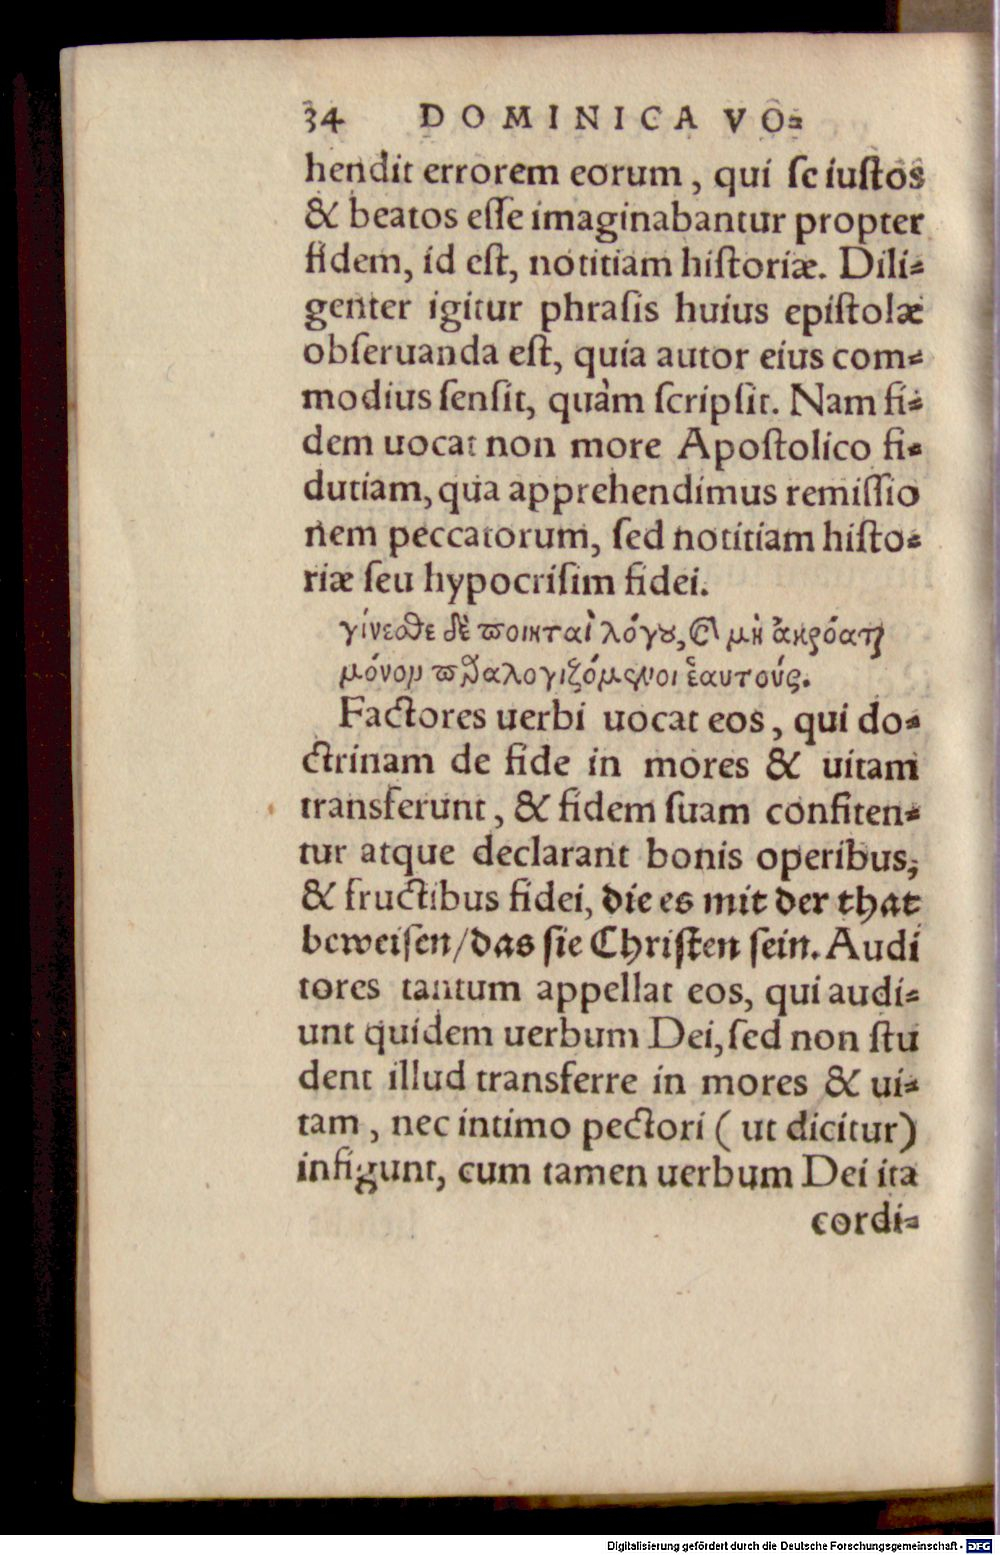 34 DOMINICA VO⸗
hendit errorem eorum, qui se iustos
& beatos esse imaginabantur propter
fidem, id est, notitiam historiæ. Dili⸗
genter igitur phrasis huius epistolæ
obseruanda est, quia autor eius com⸗
modius sensit, quàm scripsit. Nam fi⸗
dem uocat non more Apostolico fi⸗
dutiam, qua apprehendimus remissio
nem peccatorum, sed notitiam histo⸗
riæ seu hypocrisim fidei.
γίνεσθε δὲ ποιηταὶ λόγου, καὶ μὴ ἀκροαταὶ
μόνον παραλογιζόμενοι ἑαυτούς.
Factores uerbi uocat eos, qui do⸗
ctrinam de fide in mores & uitam
transferunt, & fidem suam confiten⸗
tur atque declarant bonis operibus,
& fructibus fidei, die es mit der that
beweisen/das sie Christen sein. Audi
tores tantum appellat eos, qui audi⸗
unt quidem uerbum Dei, sed non stu
dent illud transferre in mores & ui⸗
tam, nec intimo pectori (ut dicitur)
infigunt, cum tamen uerbum Dei ita
cordi⸗
Digitalisierung gefördert durch die Deutsche Forschungsgemeinschaft - DFG